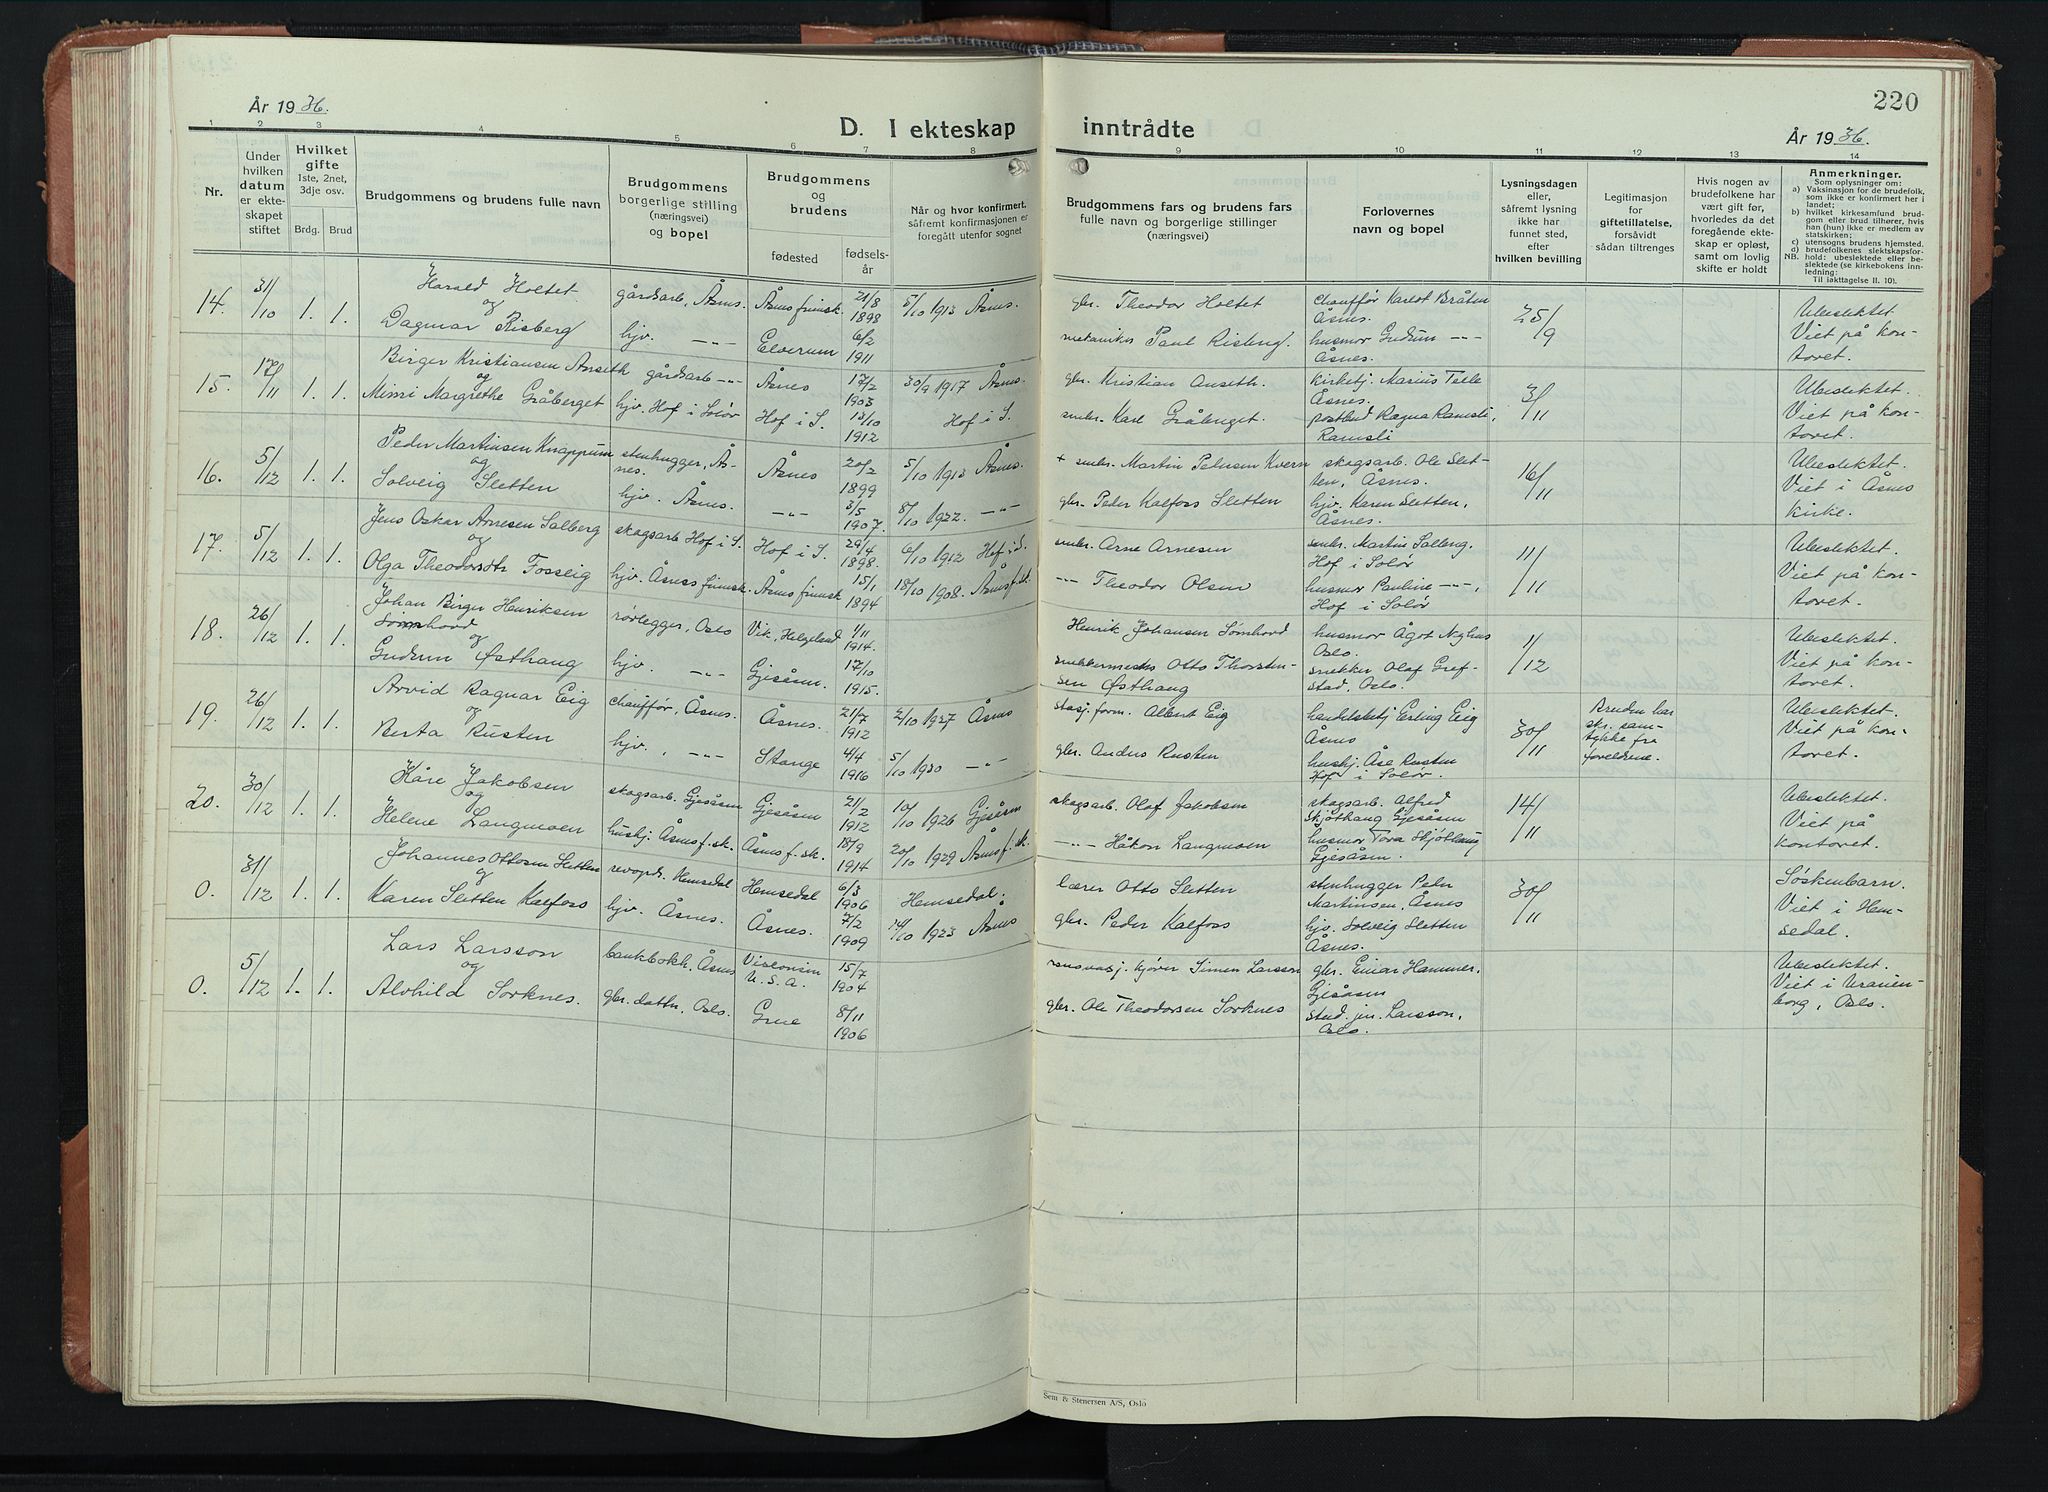 220
År 1936.
D. I ekteskap inntrådte
År 1936.
1 2 3 4 5 6 7 8 9 10 11 12 13 14
Nr.
Under hvilken datum er ekteskapet stiftet
Hvilket gifte 1ste, 2net, 3dje osv.
Brdg. Brud
Brudgommens og brudens fulle navn
Brudgommens borgerlige stilling (næringsvei) og bopel
Brudgommens og brudens
fødested
fødselsår
Når og hvor konfirmert, såfremt konfirmasjonen er foregått utenfor sognet
Brudgommens fars og brudens fars fulle navn og borgerlige stillinger (næringsvei)
Forlovernes navn og bopel
Lysningsdagen eller, såfremt lysning ikke har funnet sted, efter hvilken bevilling
Legitimasjon for giftetillatelse, forsåvidt sådan tiltrenges
Hvis nogen av brudefolkene har vært gift før, hvorledes da det foregående ekteskap er opløst, samt om lovlig skifte er holdt
Anmerkninger.
Som oplysninger om:
a) Vaksinasjon for de brudefolk, som ikke er konfirmert her i landet;
b) hvilket kirkesamfund brudgom eller brud tilhører, hvis han (hun) ikke er medlem av statskirken;
c) utensogns brudens hjemsted.
d) brudefolkenes slektskapsforhold:
NB. ubeslektede eller beslektede (se kirkebokens innledning: Til iakttagelse II. 10).
14. 31/10 1. 1. Harald Holtet gårdsarb., Åsnes. Åsnes finnsk. 21/8 1898 5/10 1913 Åsnes. gbr. Theodor Holtet Chauffør Karlot Bråten Åsnes. 25/9 Ubeslektet
og
Dagmar Risberg hjv. -"- Elverum 6/2 1911 mekaniker Paul Risberg. husmor Gudrun -"- Åsnes. Viet på kontoret.
15. 17/11 1. 1. Birger Kristiansen Anseth gårdsarb -"- Åsnes 17/2 1903 30/9 1917 Åsnes gbr. Kristian Anseth. Kirketj. Marius Tele Åsnes. 3/11 Ubeslektet
og
Mimi Margrethe Gråberget hjv. Hof i Solør Hof i S. 13/10 1912 Hof i S. smbr. Karl Gråberget postbud Ragna Ramsli, Ramsli Viet på kontoret.
16. 5/12 1. 1. Peder Martinsen Knappum stenhugger, Åsnes. Åsnes 20/2 1899 5/10 1913 Åsnes. + smbr. Martin Pedersen Kvern skogsarb. Ole Sletten, Åsnes. 16/11 Ubeslektet.
og
Solveig Sletten hjv. Åsnes. -"- 3/5 1907. 8/10 1922. -"- gbr. Peder Kalfoss Sletten hjv. Karen Sletten, Åsnes. Viet i Åsnes kirke.
17. 5/12 1. 1. Jens Oskar Arnesen Solberg skogsarb Hof i S. Hof i S. 29/4 1898. 6/10 1912 Hof i S. smbr. Arne Arnesen smbr. Martin Solberg, Hof i Solør 11/11 Ubeslektet.
og
Olga Theodorsdtr Fosseig hjv. Åsnes finnsk. Åsnes finnsk 15/1 1894 18/10 1908. Åsnes f.sk. -"- Theodor Olsen husmor Pauline -"-, Hof i Solør Viet på kontoret.
18. 26/12 1. 1. Johan Birger Henriksen Sømhovd rørlegger, Oslo Vik, Helgeland 1/11 1914. Henrik Johansen Sømhovd husmor Ågot Nyhus Oslo. 1/12 Ubeslektet.
og
Gudrun Østhaug hjv. -"- Gjesåsen. 17/10 1915. snekkermester Otto Thorstensen Østhaug snekker Olaf Grefstad, Oslo. Viet på kontoret.
19. 26/12 1. 1. Arvid Ragnar Eig chauffør, Åsnes. Åsnes. 21/7 1912 2/10 1927 Åsnes stasj. form. Albert Eig handelsbetj Erling Eig Åsnes 30/11 Bruden har skr. samtykke fra foreldrene. Ubeslektet.
og
Berta Rusten hjv., -"- Stange 4/4 1916 5/10 1930 -"- gbr. Anders Rusten hushj. Åse Rusten Hof i Solør. Viet på kontoret.
20. 30/12 1. 1. Kåre Jakobsen skogsarb. Gjesåsen Gjesåsen 21/2 1912 10/10 1926 Gjesåsen skogsarb. Olaf Jakobsen skogsarb. Alfred Skjøthaug Gjesåsen 14/11 Ubeslektet.
og
Helene Langmoen hushj. Åsnes f.sk. Åsnes f.sk. 18/9 1914 20/10 1929 Åsnes f.sk. -"- Håkon Langmoen husmor Tora Skjøthaug Gjesåsen. Viet på kontoret.
0. 31/12 1. 1. Johannes Ottosen Sletten Hemsedal Hemsedal 6/3 1906 Hemsedal. lærer Otto Sletten stenhugger Peder Martinsen, Åsnes 30/11 Søskenbarn.
og
Karen Sletten Kalfoss hjv. Åsnes. Åsnes. 7/2 1909 14/10 1923 Åsnes gbr. Peder Kalfoss hjv. Solveig Sletten Åsnes. Viet i Hemsedal.
0. 5/12 1. 1. Lars Larsson bankbokh., Åsnes Visconsin U.S.A. 15/7 1904 Simen Larsson gbr. Einar Hammer, Gjesåsen Ubeslektet.
og
Alvhild Sorknes. gbr. dattr, Oslo. Grue 8/11 1906 gbr. Ole Theodorsen Sorknes stud. jur. Larsson, Oslo. Viet i Uranienborg, Oslo.
Sem & Stenersen A/S, Oslo